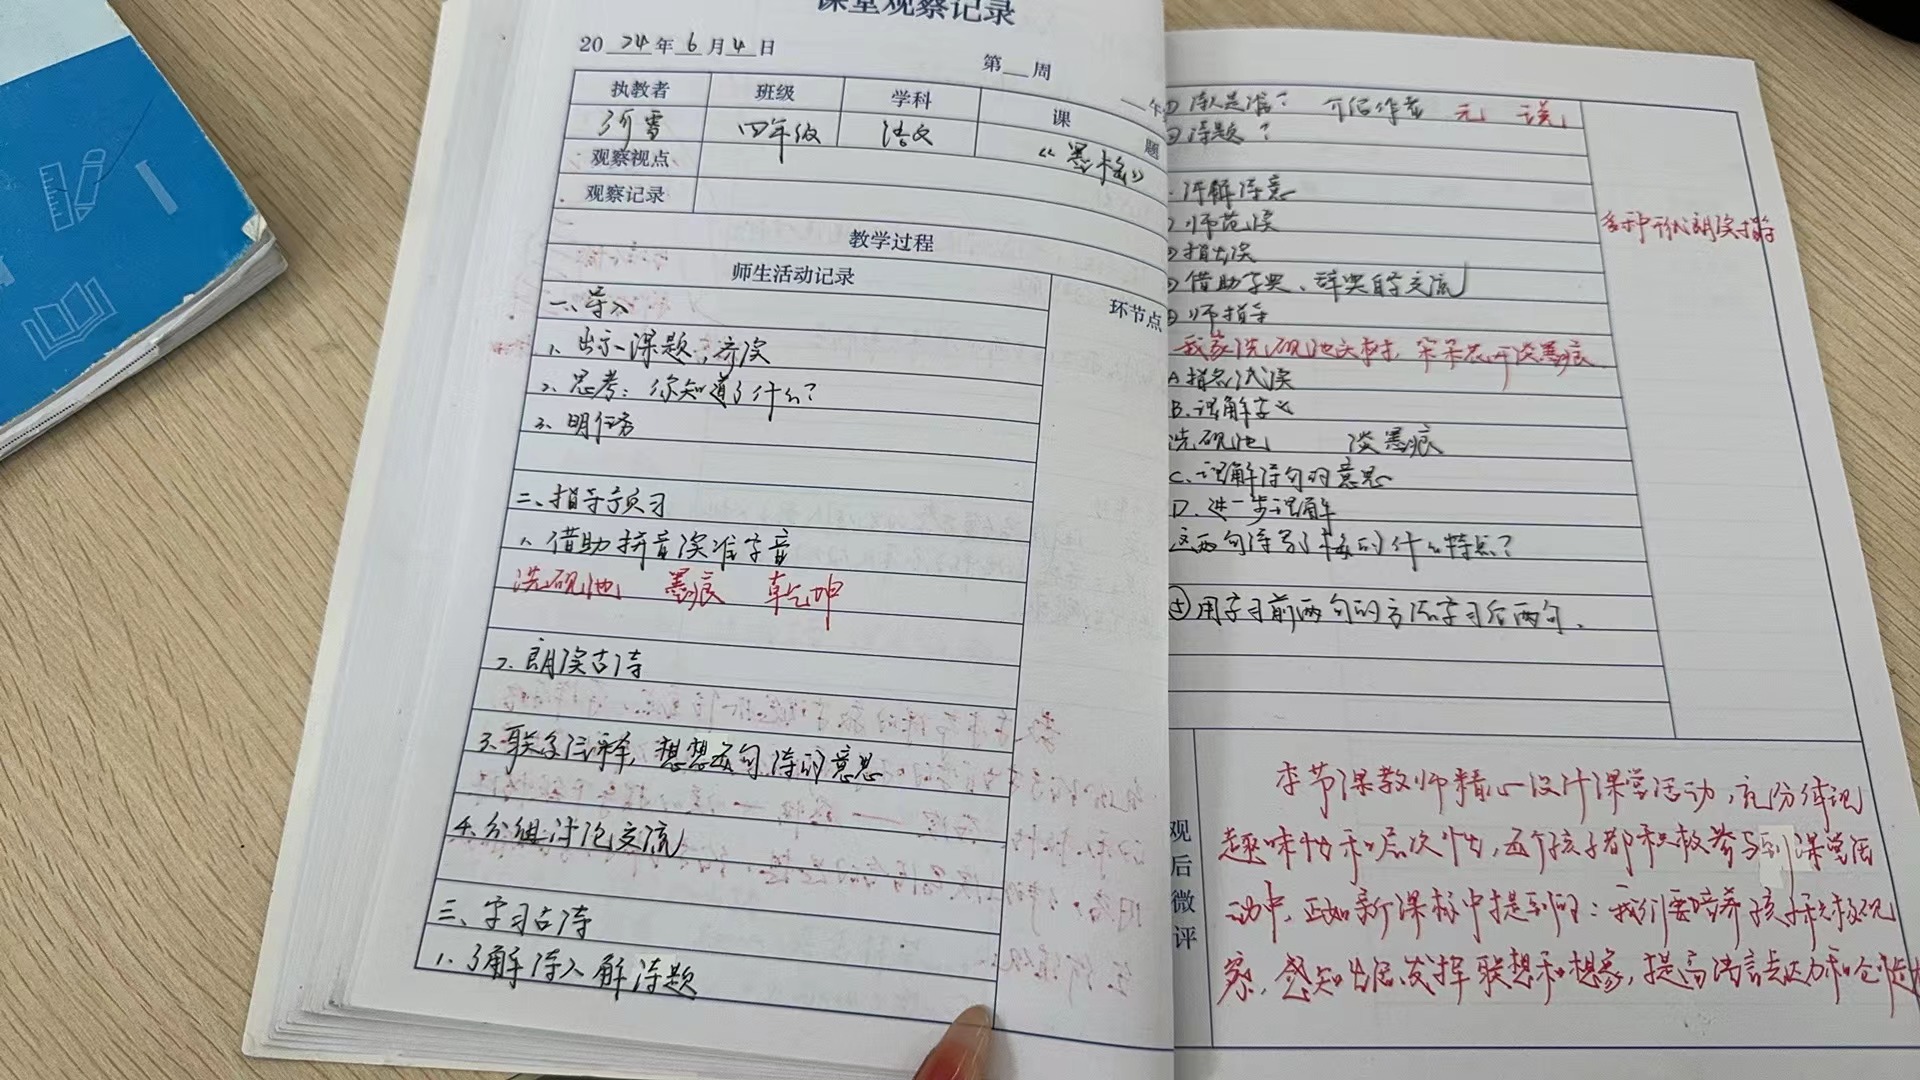 课堂观察记录
2024年6月4日
第__周
执教者 班级 学科 课题
四年级 语文 《墨梅》
观察视点
观察记录
教学过程
师生活动记录
环节点
一、导入
1、出示课题，齐读
2、思考：你知道了什么？
3、明任务
二、指导预习
1、借助拼音读准字音
洗砚池 墨痕 乾坤
2、朗读古诗
3、联系注释，想想每句诗的意思
4、分组讨论交流
三、学习古诗
1、了解诗人解诗题
诗人是谁？ 介绍作者 元
诗题？
讲解诗意
师范读
指生读
各种形式朗读指导
借助字典、辞典自学交流
师指导
我家洗砚池头树，朵朵花开淡墨痕
A 指名试读
B、理解字义
洗砚池 淡墨痕
C、理解诗句的意思
D、进一步理解
这两句诗写了梅的什么特点？
⑤用学习前两句的方法学习后两句。
观后微评
本节课教师精心设计课堂活动，充分体现
趣味性和层次性，每个孩子都积极参与到课堂活
动中，正如新课标中提到的：我们要培养孩子积极观
察，感知生活，发挥联想和想象，提高语言表达力和创造